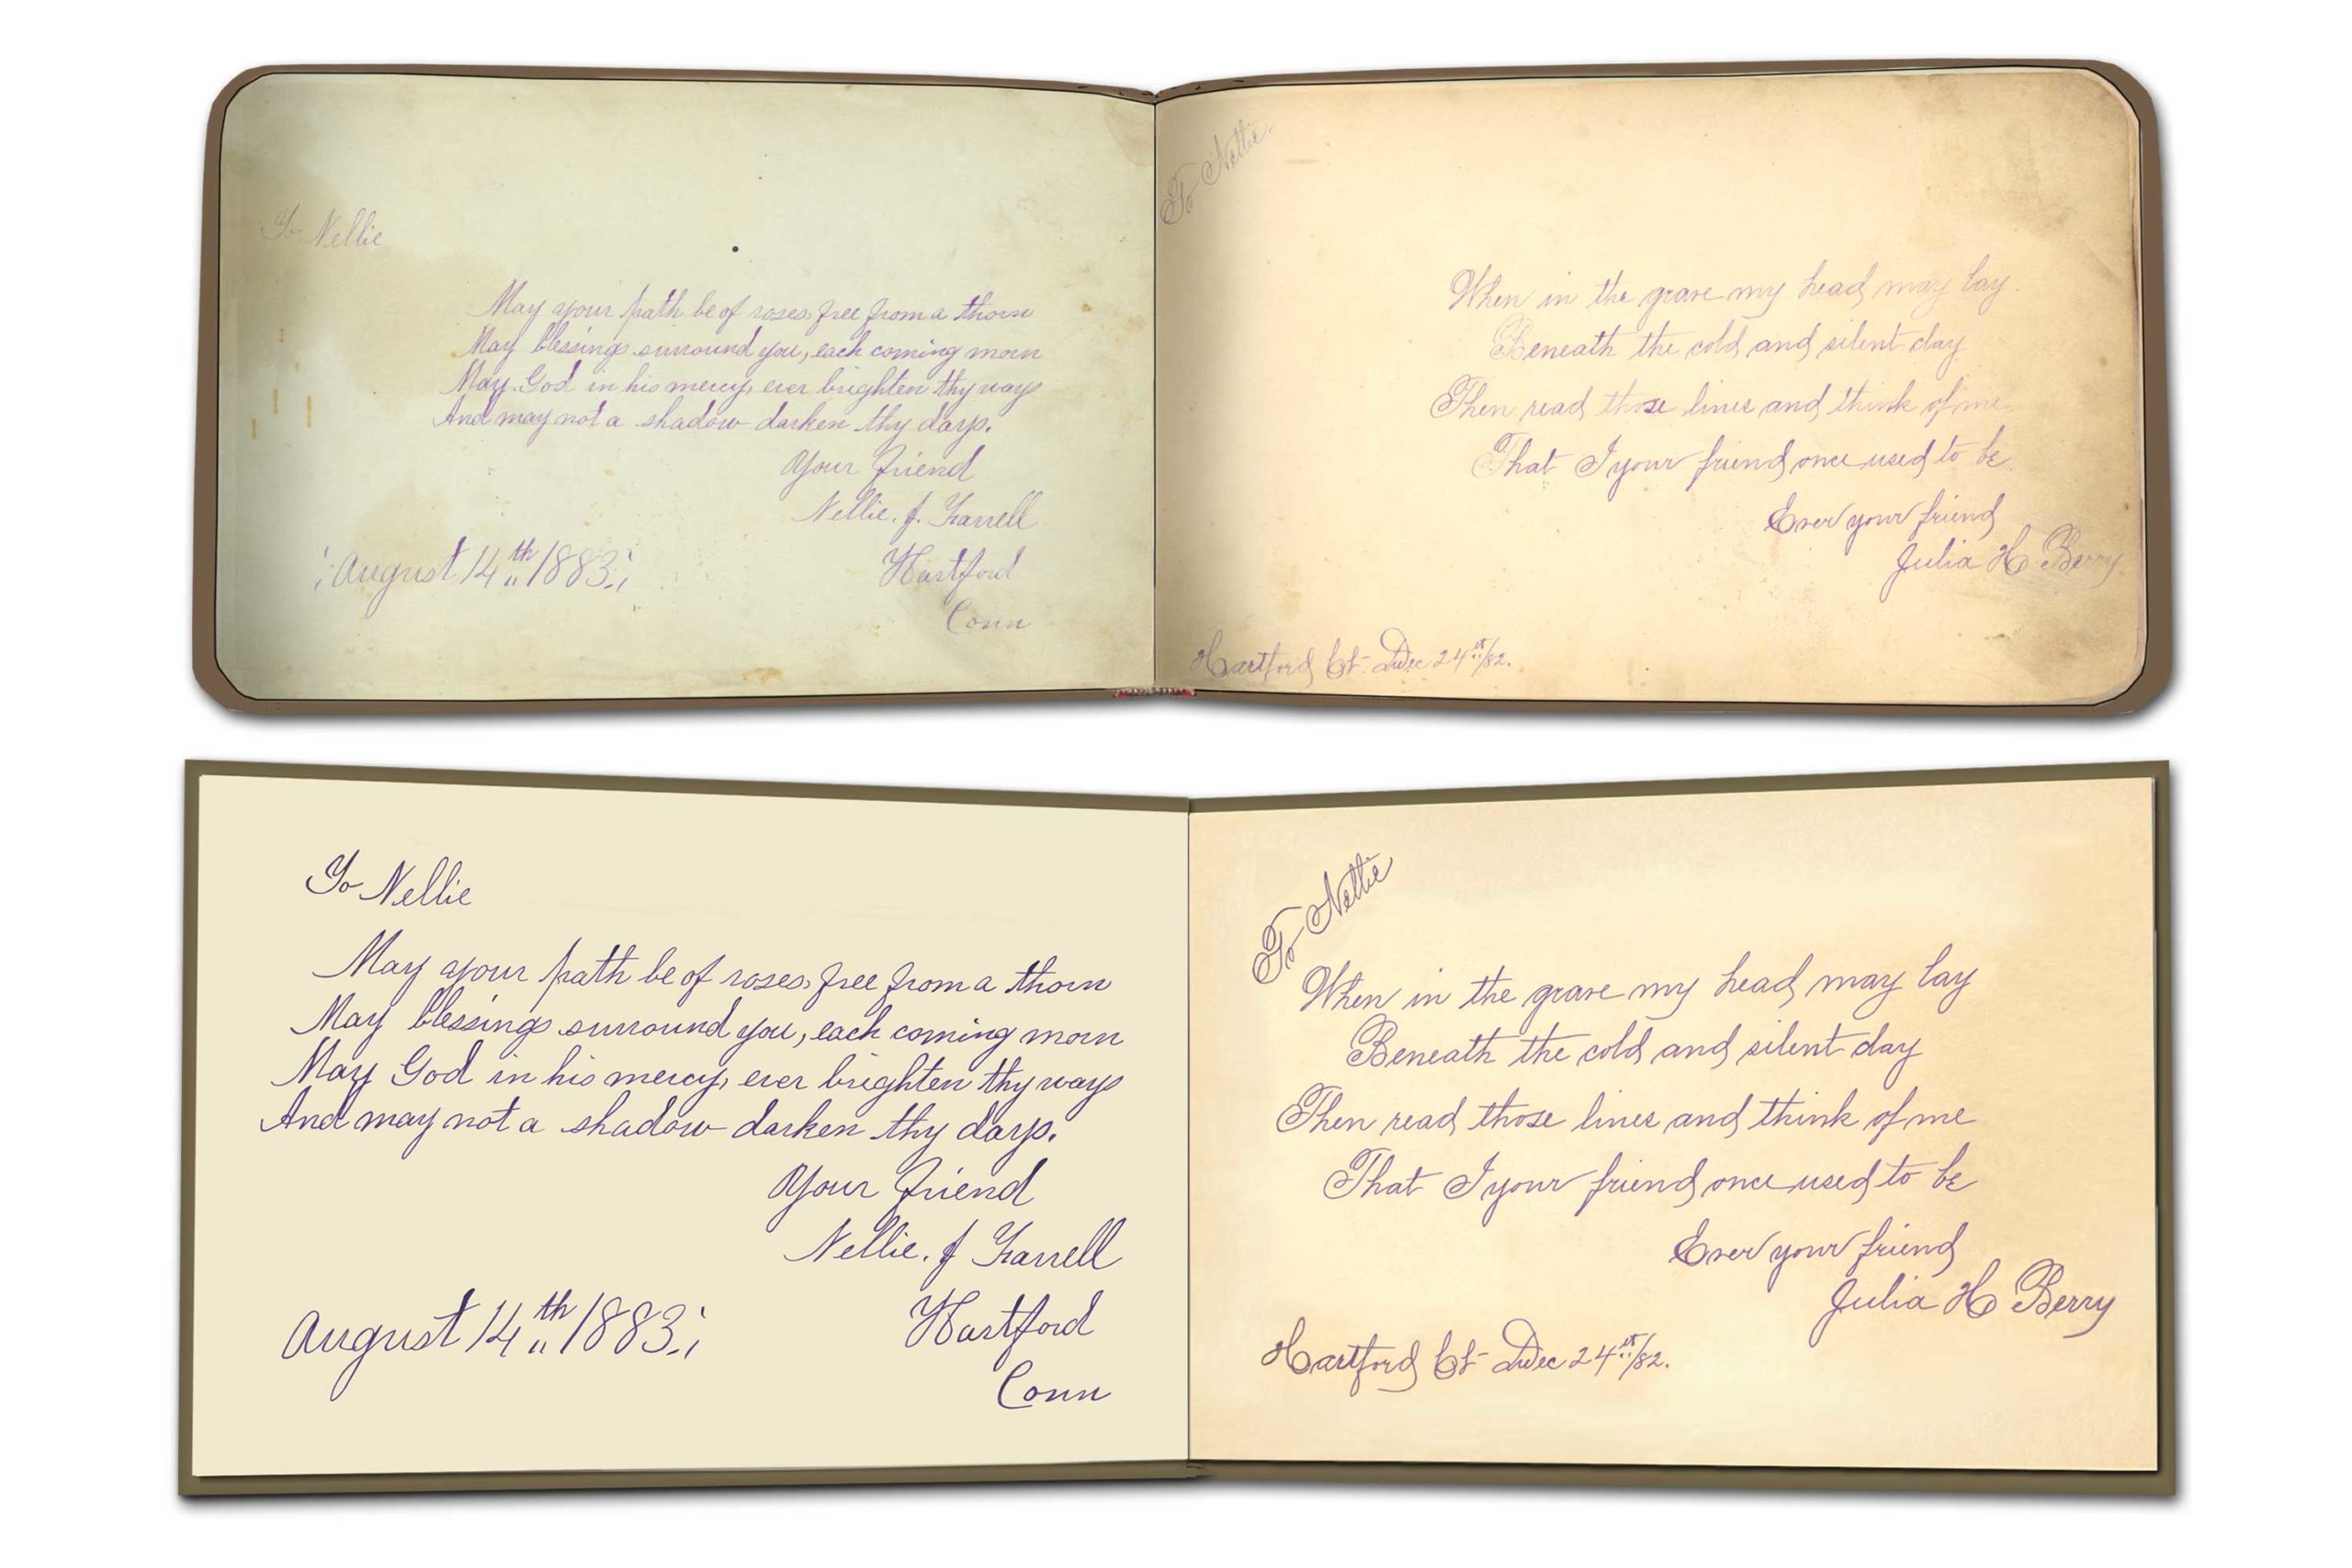 To Nellie
May your path be of roses, free from a thorn
May blessings surround you, each coming morn
May God in his mercy, ever brighten thy ways
And may not a shadow darken thy days.
Your Friend
Nellie. J. Farrell
Hartford
Conn
August 14th 1883
To Nettie
When in the grave my head may lay
Beneath the cold and silent clay
Then read those lines and think of me
That I your friend once used to be.
Ever your friend
Julia H Berry
Hartford Ct- Dec 24st/82.
To Nellie
May your path be of roses, free from a thorn
May blessings surround you, each coming morn
May God in his mercy, ever brighten thy ways
And may not a shadow darken thy days.
Your Friend
Nellie. J Farrell
Hartford
Conn
August 14th 1883
To Nettie
When in the grave my head may lay
Beneath the cold and silent clay
Then read those lines and think of me
That I your friend once used to be
Ever your friend
Julia H Berry
Hartford Ct- Dec 24st/82.